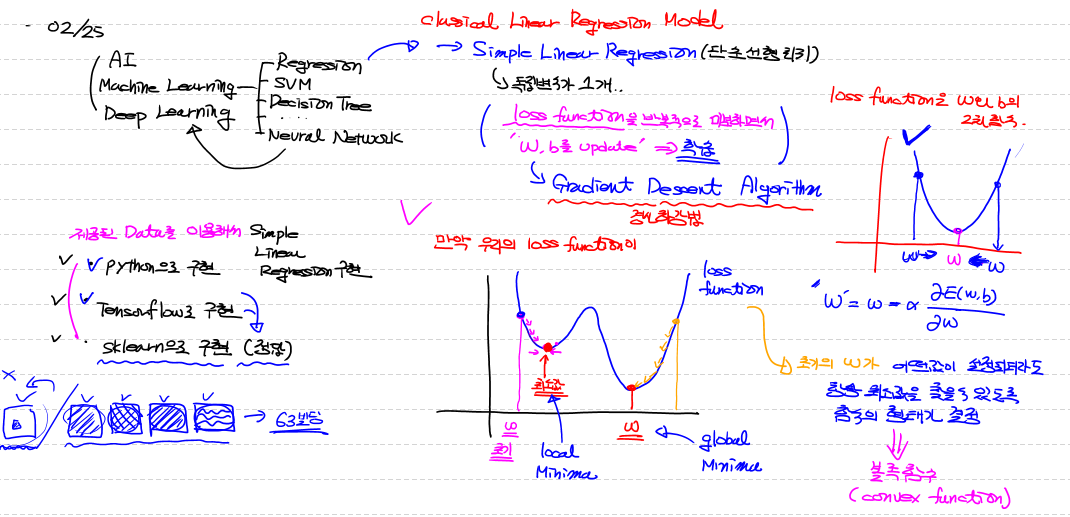 02/25
AI
Machine Learning
Deep Learning
Regression
SVM
Decision Tree
.....
Neural Network
Classical Linear Regression Model
→ Simple Linear Regression (단순선형회귀)
독립변수가 1개..
loss function을 반복적으로 미분하면서
"W, b를 update" ⇒ 학습
Gradient Descent Algorithm
경사하강법
loss function은 W와 b의
2차함수.
W W W
W' = W = α ∂E(W,b)/∂W
제공된 Data를 이용해서 Simple
Linear
Regression 구현
python으로 구현
Tensorflow로 구현
sklearn으로 구현 (정답)
→ 63빌딩
만약 우리의 loss function이
loss
function
최소값
W
초기
local
Minima
W
global
Minima
초기의 W가 어떤값이 설정되더라도
항상 최소값을 찾을 수 있도록
함수의 형태가 결정
볼록함수
(convex function)